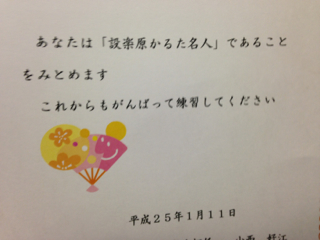 あなたは「設楽原かるた名人」であること
をみとめます
これからもがんばって練習してください
平成25年1月11日